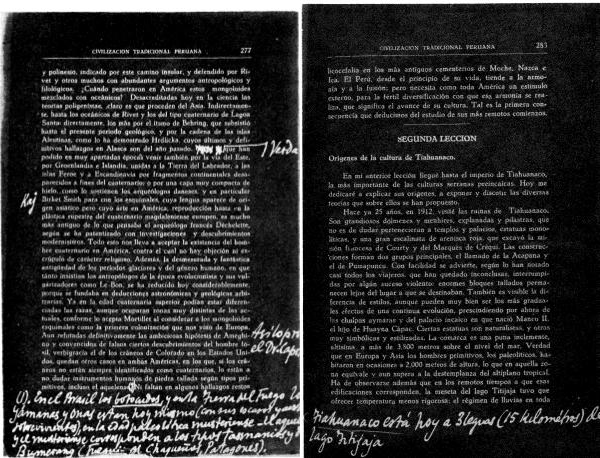 CIVILIZACION TRADICIONAL PERUANA 277
y polinesio, indicado por este camino insular, y defendido por Ri-
vet y otros muchos con abundantes argumentos antropológicos y
filológicos. ¿Cuándo penetraron en América estos mongoloides
mezclados con oceánicos? Desacreditadas hoy en la ciencia las
teorías poligenistas, claro es que proceden del Asia. Indirectamen-
te, hasta los oceánicos de Rivet y los del tipo cuaternario de Lagoa
Santa; directamente, los más por el itsmo de Behring, que subsistió
hasta el presente período geológico, y por la cadena de las islas
Aleutinas, como lo ha demostrado Hrdlicka, cuyos últimos y defi-
nitivos hallazgos en Alaska son del año pasado. que han
podido en muy apartadas épocas venir también por la vía del Este,
por Groenlandia e Islandia, unidas a la Tierra del Labrador, a las
islas Feroe y a Escandinavia por fragmentos continentales desa-
parecidos a fines del cuaternario; o por una capa muy compacta de
hielo, como lo sostienen los arqueólogos daneses, y en particular
Birket Smith para con los esquimales, cuya lengua aparece de ori-
gen asiático pero cuyo arte en América, reproducción hasta en la
plástica rupestre del cuaternario magdaleniense europeo, es mucho
más antiguo de lo que pensaba el arqueólogo francés Déchelette,
según se ha patentizado con investigaciones y descubrimientos
modernísimos. Todo esto nos lleva a aceptar la existencia del hom-
bre cuaternario en América, contra el cual no hay objeción ni es-
crúpulo de carácter religioso. Además, la desmesurada y fantástica
antigüedad de los períodos glaciares y del género humano, en que
tanto insistían los antropólogos de la época evolucionista y sus vul-
garizadores como Le-Bon, se ha reducido hoy considerablemente,
porque se fundaba en deducciones astronómicas y geológicas arbi-
trarias. Ya en la edad cuaternaria superior podían estar diferen-
ciadas las razas, aunque ocuparan zonas muy distintas de las ac-
tuales, conforme lo acepta Mortillet al considerar a los mongoloides
esquimales como la primera colonización que nos vino de Europa.
Aun refutadas definitivamente las ambiciosas hipótesis de Ameghi-
no y convencidas de falsas ciertos descubrimientos del hombre fó-
sil, verbigracia el de los cráneos de Colorado en los Estados Uni-
dos, quedan otros casos en ambas Américas, en los que, si los crá-
neos no están siempre identificados como cuaternarios, lo están a
no dudar instrumentos humanos de piedra tallada según tipos pri-
mitivos, incluso el aquelense. Ni faltan en algunos hallazgos restos
(1). En el Brasil los botocudos, y en la Tierra del Fuego los
CIVILIZACION TRADICIONAL PERUANA 283
licocefalia en los más antiguos cementerios de Moche, Nazca e
Ica. El Perú, desde el principio de su vida, tiende a la armo-
nía y a la fusión; pero necesita como toda América un estímulo
externo, para la fertil diversificación con que esa armonía se rea-
liza, que significa el avance de su cultura. Tal es la primera con-
secuencia que deducimos del estudio de sus más remotos comienzos.
SEGUNDA LECCION
Orígenes de la cultura de Tiahuanaco.
En mi anterior lección llegué hasta el imperio de Tiahuanaco,
la más importante de las culturas serranas preincaicas. Hoy me
dedicaré a explicar sus orígenes, a exponer y discutir las diversas
teorías que sobre ellos se han propuesto.
Hace ya 25 años, en 1912, visité las ruinas de Tiahuanaco.
Son grandiosos dólmenes y menhires, explanadas y pilastras, que
no es de dudar pertenecieran a templos y palacios, estatuas mono-
líticas, y una gran escalinata de arenisca roja, que excavó la mi-
sión francesa de Courty y del Marqués de Créqui. Las construc-
ciones forman dos grupos principales, el llamado de la Acapana y
el de Pumapuncu. Con facilidad se advierte, según lo han notado
casi todos los viajeros, que han quedado inconclusas, interrumpi-
das por algún suceso violento: enormes bloques tallados perma-
necen lejos del lugar a que se destinaban. También es visible la di-
ferencia de estilos, aunque pueden muy bien ser los más gradua-
les efectos de una continua evolución, prescindiendo por ahora de
los chulpas aymaras y del palacio incaico en que nació Manco II,
el hijo de Huayna Cápac. Ciertas estatuas son naturalistas, y otras
muy simbólicas y estilizadas. La comarca es una puna inclemente,
altísima, a más de 3.800 metros sobre el nivel del mar. Verdad
que en Europa y Asia los hombres primitivos, los paleolíticos, ha-
bitaron en ocasiones a 2.000 metros de altura, lo que en aquella zo-
na equivale y aun supera a la destemplanza del altiplano tropical.
Ha de observarse además que en los remotos tiempos a que esas
edificaciones corresponden, la meseta del lago Titijaja tuvo que
ofrecer temperatura menos rigurosa; el régimen de lluvias en toda
Tiahuanaco está hoy a 3 leguas (15 kilómetros) del
lago Titijaja